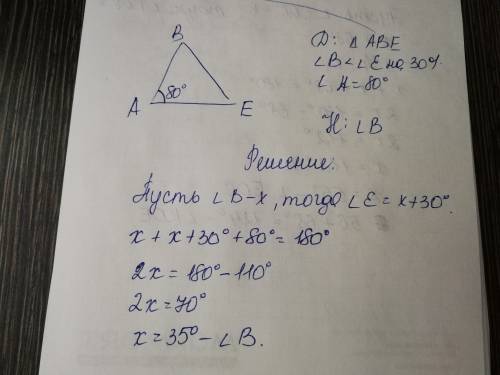 B
Д: △ ABE
∠B < ∠E на 30%
80°
∠A = 80°
A
E
Н: ∠B
Решение.
Пусть ∠B-x, тогда ∠E = x+30°.
x + x + 30° + 80° = 180°
2x = 180° - 110°
2x = 70°
x = 35° - ∠B.